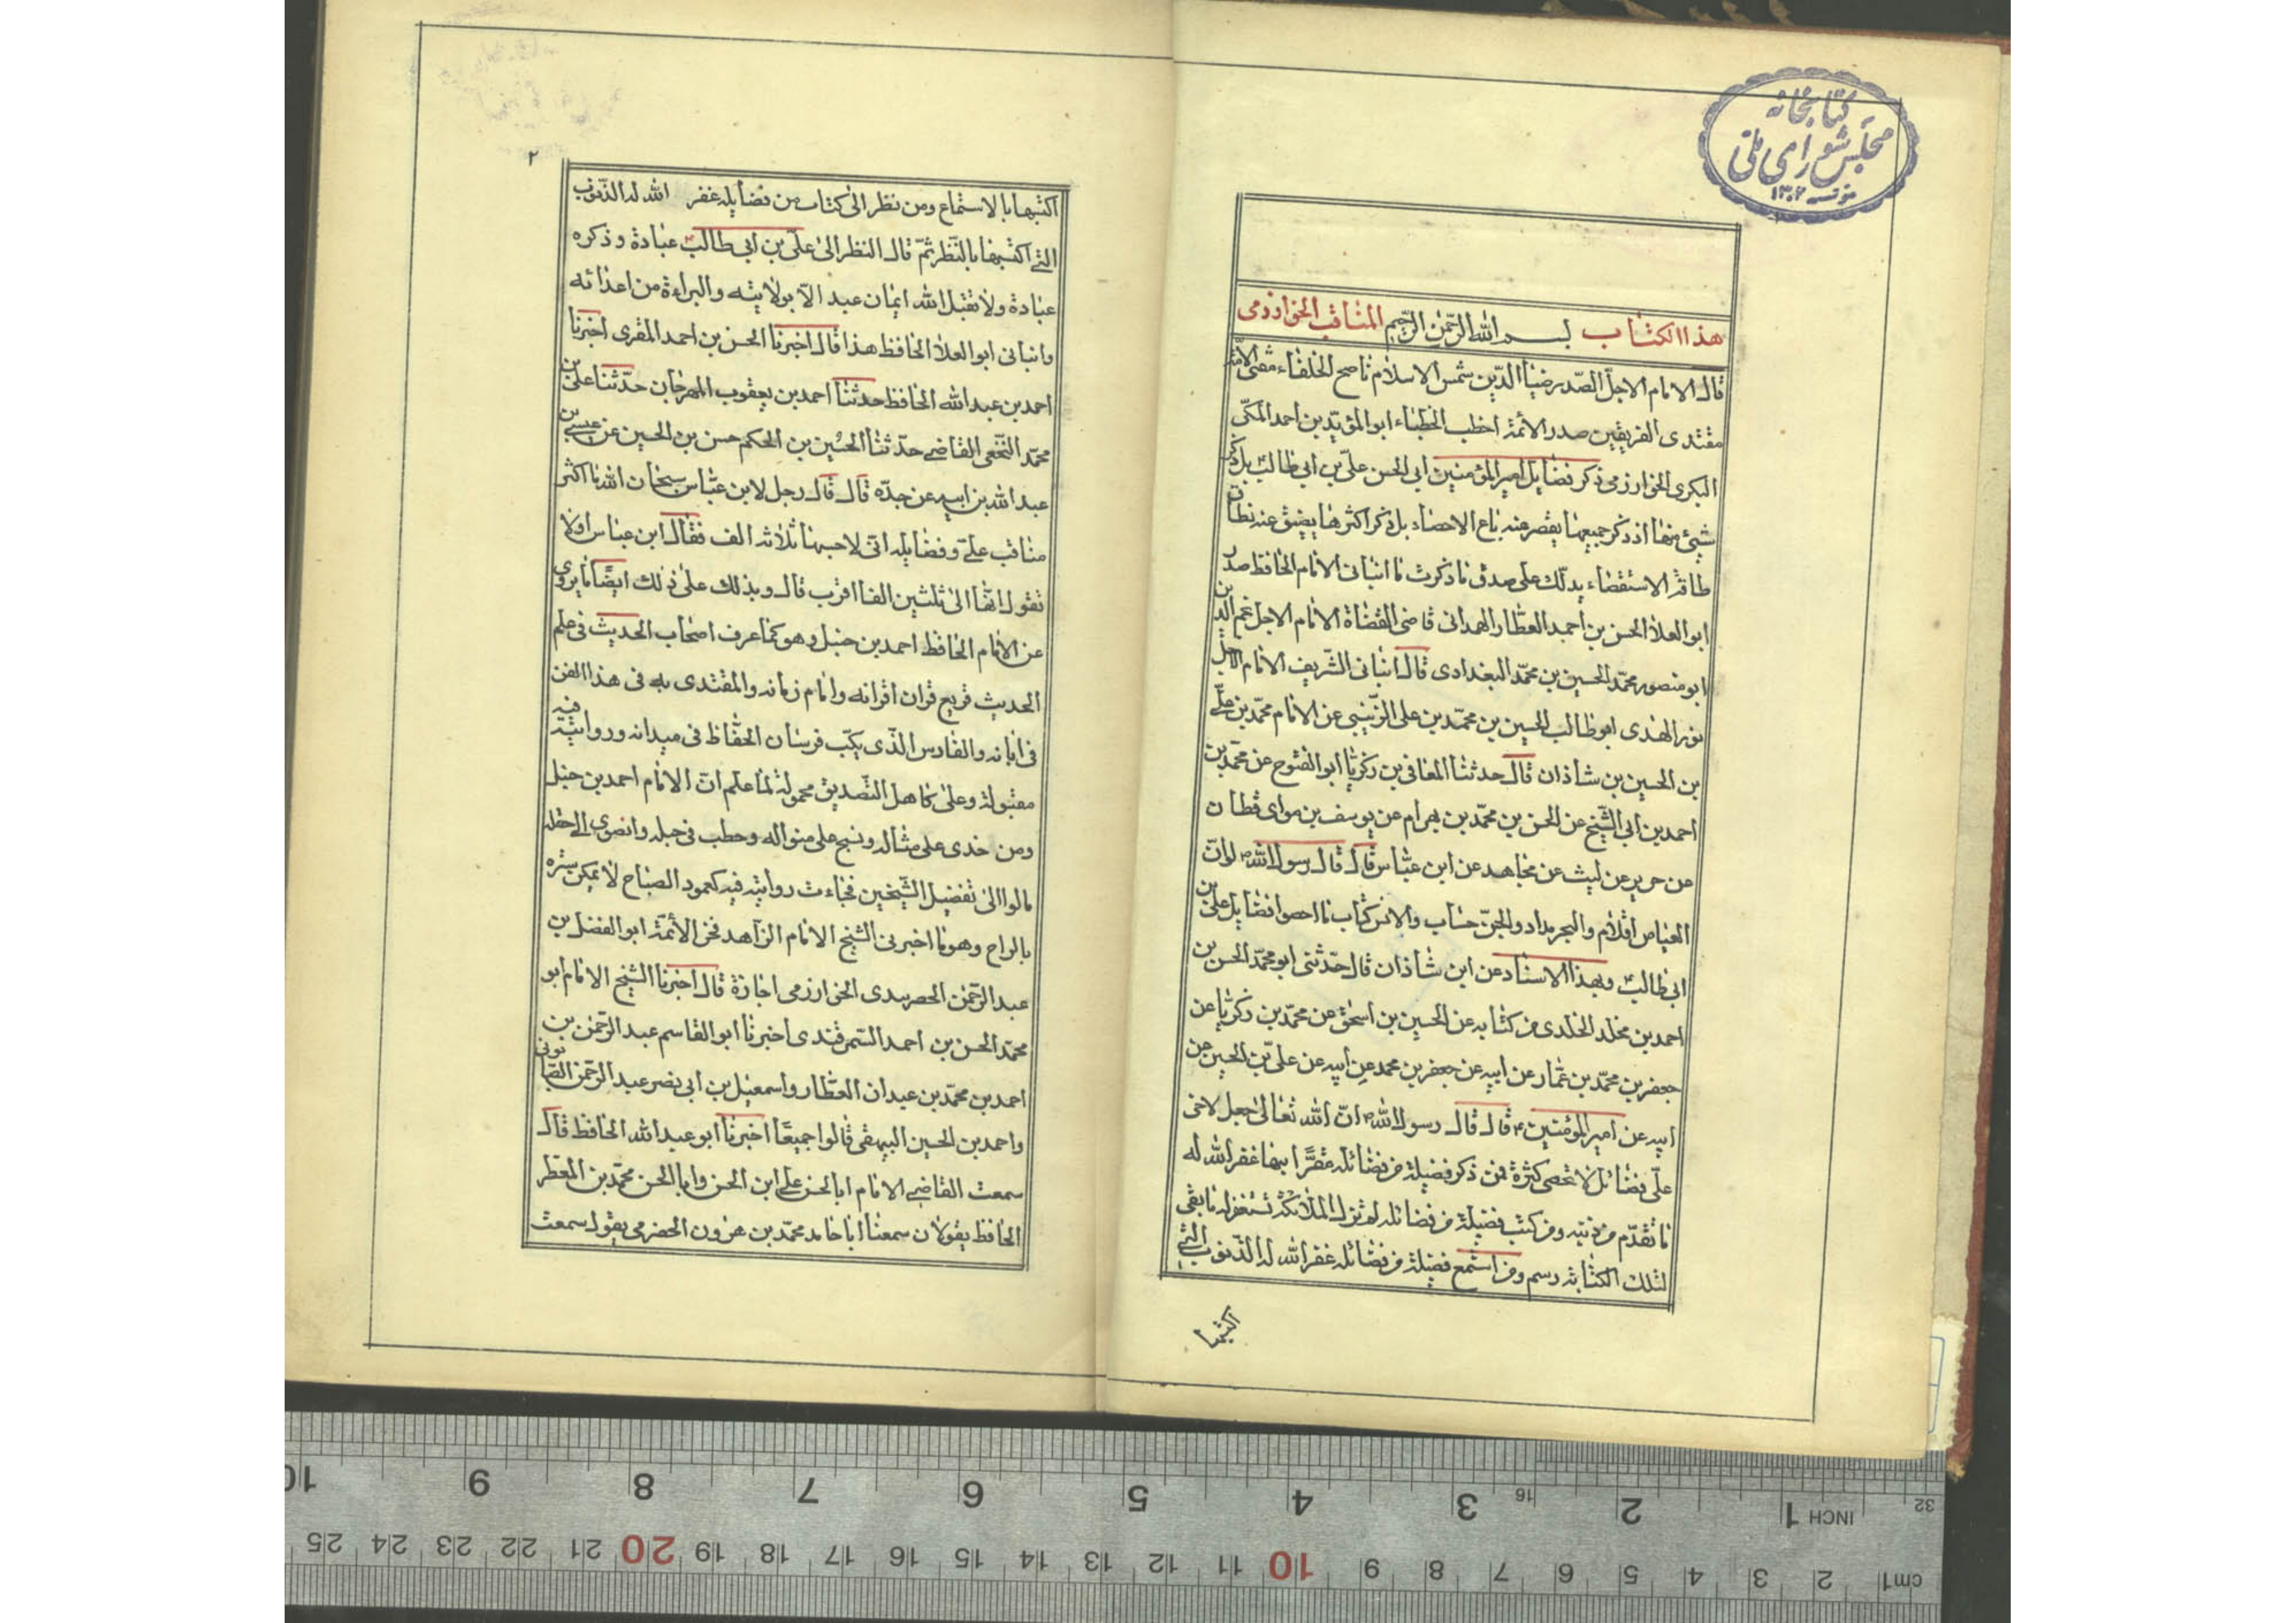 كتابخانه
مجلس شورای ملی
۱۳۰۲
هذا الكتاب بسم الله الرحمن الرحيم المناقب الخوارزمی
قال الامام الاجلّ الصّدر ضياء الدّين شمس الاسلام ناصح الخلفاء مفتی الامّة
مقتدی الفريقين صدر الائمة اخطب الخطباء ابو المؤيّد بن احمد المكّی
البكری الخوارزمی ذكر فضايل امير المؤمنين ابی الحسن علیّ بن ابی طالب بل ذكر
شیئ منها اذ ذكر جميعها يقصر عنه باع الاحصاء بل ذكر اكثرها يضيق عنه نطاق
طاقة الاستقصاء يدلّك علی صدق ما ذكرت ما انبانی الامام الحافظ صدر
ابو العلا الحسن بن احمد العطّار الهمدانی قاضی القضاة الامام الاجل نجم الدين
ابو منصور محمّد الحسين بن محمّد البغدادی قال انبانی الشّريف الامام الاجل
نور الهدی ابو طالب الحسين بن محمّد بن علی الزّينبی عن الامام محمّد بن علی
بن الحسين بن شاذان قال حدثنا المعافی بن زكريّا ابو الفتوح عن محمّد بن
احمد بن ابی الشّيخ عن الحسن بن محمّد بن بهرام عن يوسف بن موای قطان
عن حرير عن ليث عن مجاهد عن ابن عبّاس قال قال رسول الله ص لو انّ
الغياض اقلام والبحر مداد والجنّ حسّاب والانس كتّاب ما احصوا فضايل علیّ بن
ابی طالب وبهذا الاسناد عن ابن شاذان قال حدّثنی ابو محمّد الحسن بن
احمد بن مخلد الخلدی من كتابه عن الحسين بن اسحق عن محمّد بن زكريّا عن
جعفر بن محمّد بن عمّار عن ابيه عن جعفر بن محمد عن ابيه عن علیّ بن الحسين عن
ابيه عن امير المؤمنين ع قال قال رسول الله ص انّ الله تعالی جعل لاخی
علیّ فضائل لا تحصی كثرة فمن ذكر فضيلة من فضائله مقرّا بها غفر الله له
ما تقدّم من ذنبه ومن كتب فضيلة من فضائله لم تزل الملائكة تستغفر له ما بقی
لتلك الكتابة رسم ومن استمع فضيلة من فضائله غفر الله له الذّنوب الّتی
اكتسبها
۲
اكتسبها بالاستماع ومن نظر الی كتاب من فضايله غفر الله له الذّنوب
التی اكتسبها بالنّظر ثمّ قال النظر الی علیّ بن ابی طالب عبادة وذكره
عبادة ولا تقبل الله ايمان عبد الّا بولايته والبراءة من اعدائه
وانبانی ابو العلا الحافظ هذا قال اخبرنا الحسن بن احمد المقری اخبرنا
احمد بن عبد الله الحافظ حدثنا احمد بن يعقوب المهرجان حدّثنا علیّ بن
محمّد النّخعی القاضی حدّثنا الحسين بن الحكم حسن بن الحسين عن عيسی بن
عبد الله بن ابيه عن جدّه قال قال رجل لابن عبّاس سبحان الله ما اكثر
مناقب علیّ وفضايله انی لاحسبها ثلاثه الف فقال ابن عباس اولا
تقول انّها الی ثلثين الفا اقرب قال ويدلك علی ذلك ايضًا ما يروی
عن الامام الحافظ احمد بن حنبل وهو كما عرف اصحاب الحديث فی علم
الحديث قريع قران اقرانه وامام زمانه والمقتدی به فی هذا الفن
فی ابانه والفارس الّذی يكبّ فرسان الحفّاظ فی ميدانه وروايته فيه
مقبولة وعلی كاهل التّصديق محمولة لما علم ان الامام احمد بن حنبل
ومن حذی علی مثاله ونسج علی منواله وحطب فی حبله وانضوی الی حفله
مالوا الی تفضيل الشّيخين فجاءت روايته فيه كعمود الصباح لا يمكن ستره
بالراح وهو ما اخبرنی الشيخ الامام الزّاهد فخر الائمّة ابو الفضل بن
عبد الرّحمن الحصربندی الخوارزمی اجازة قال اخبرنا الشيخ الامام ابو
محمّد الحسن بن احمد السّمرقندی اخبرنا ابو القاسم عبد الرّحمن بن
احمد بن محمّد بن عبدان العطّار واسمعيل بن ابی نصر عبد الرّحمن الصّابونی
واحمد بن الحسين البيهقی قالوا جميعًا اخبرنا ابو عبد الله الحافظ قال
سمعت القاضی الامام ابا الحسن علی ابن الحسن وابا الحسن محمّد بن المظفر
الحافظ يقولان سمعنا ابا حامد محمّد بن هرون الحضرمی يقول سمعت
10 9 8 7 6 5 4 3 16 2 1 INCH 32
25 24 23 22 21 20 19 18 17 16 15 14 13 12 11 10 9 8 7 6 5 4 3 2 cm1